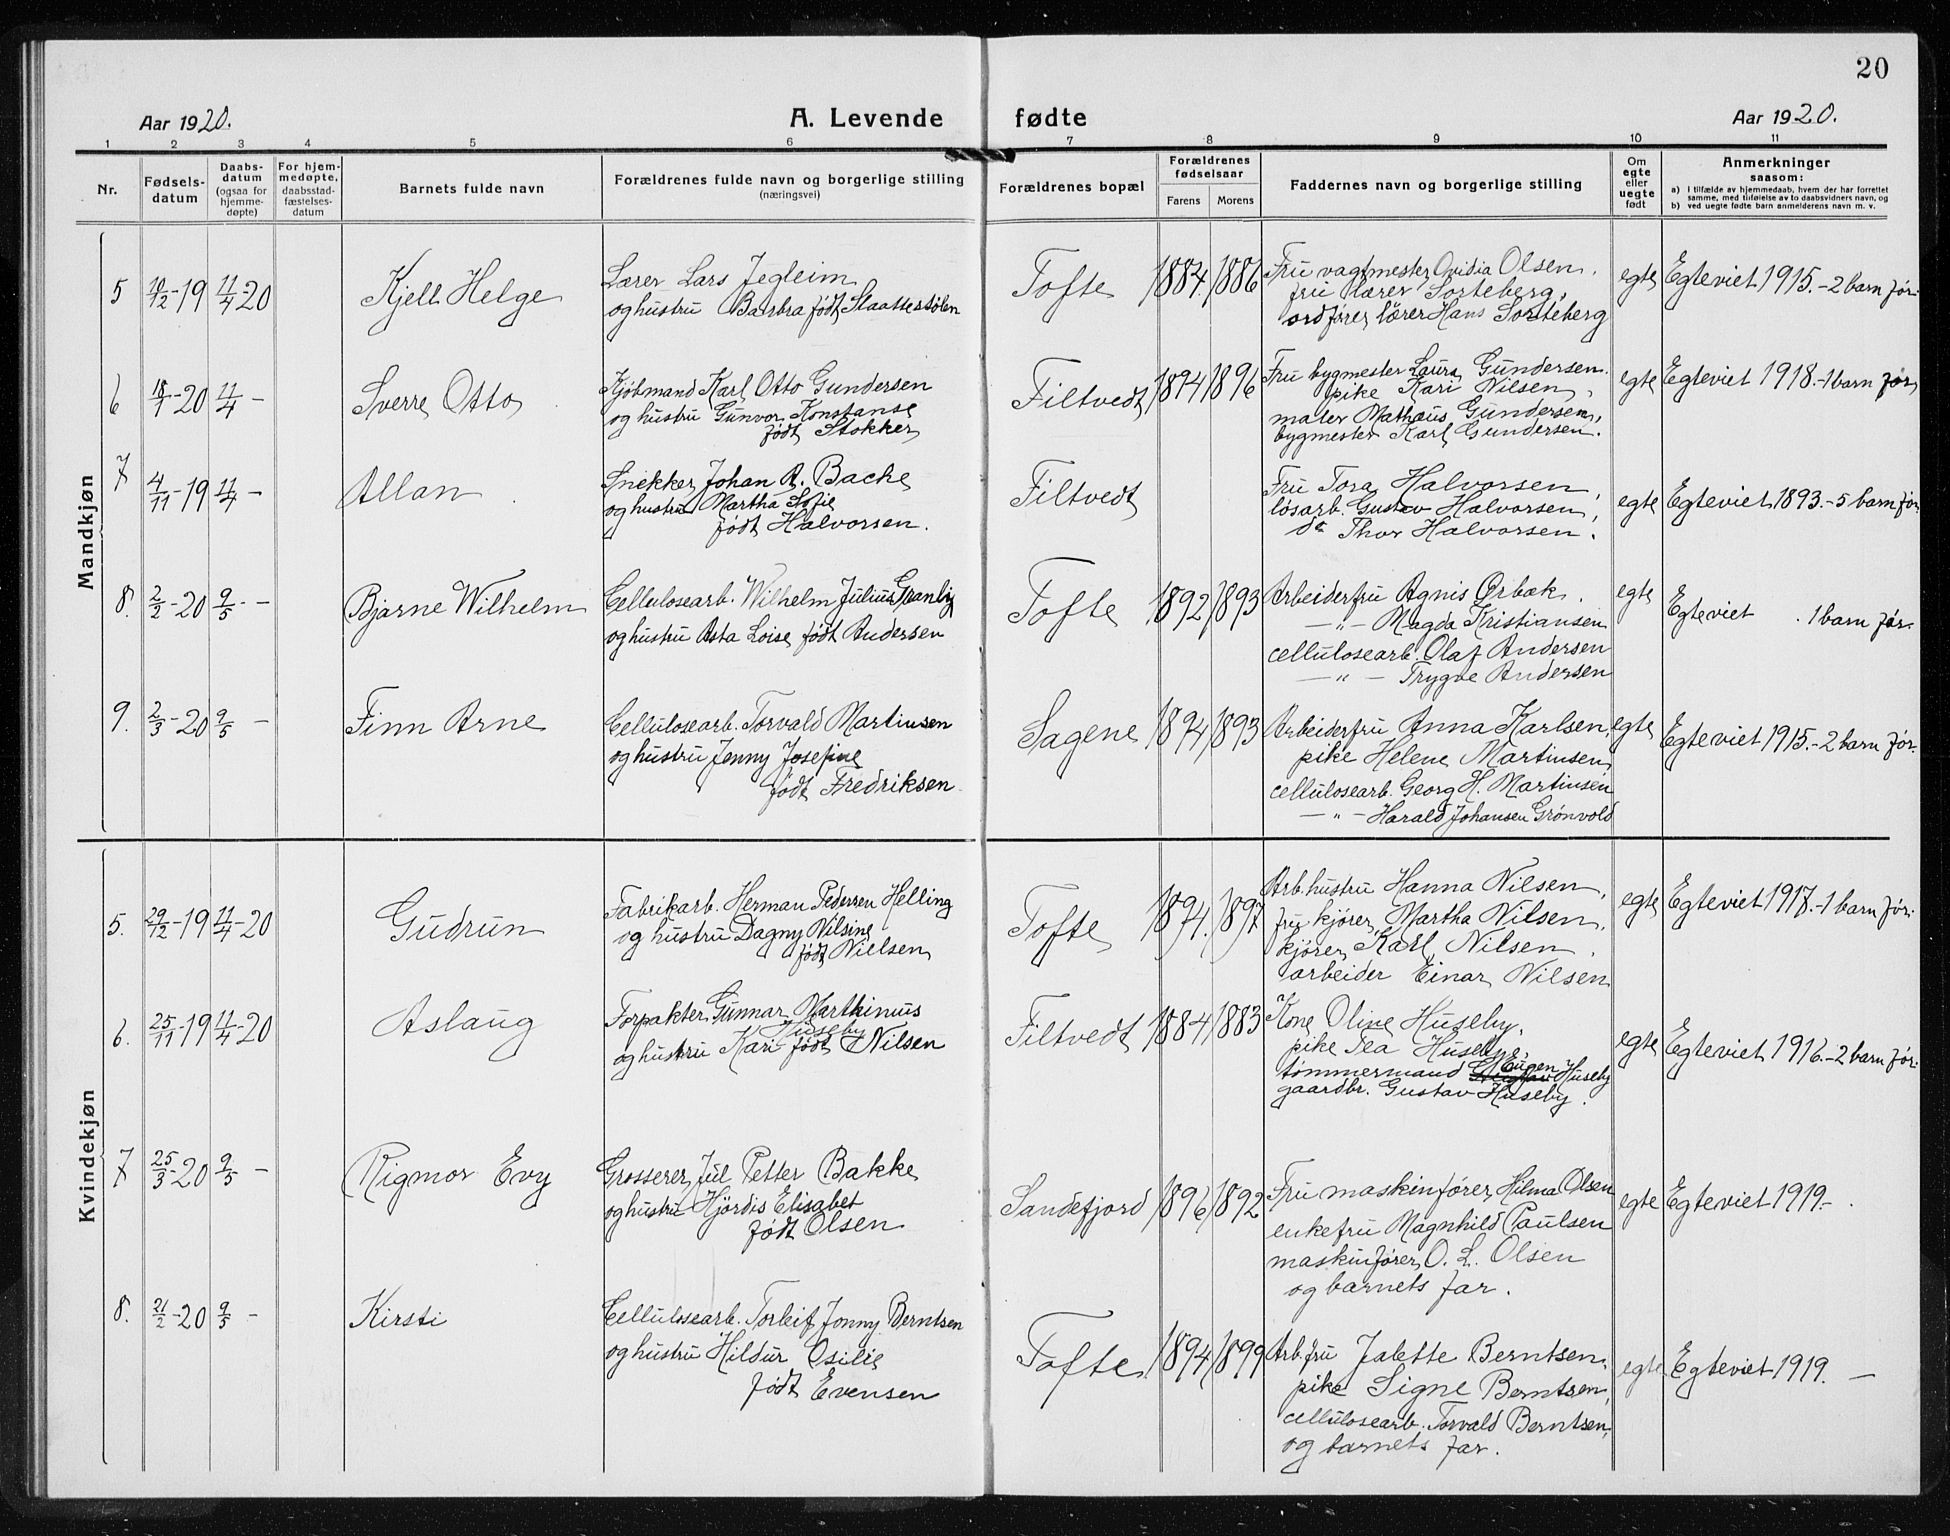 20
Aar 1920.
A. Levende fødte
Aar 1920.
1 2 3 4 5 6 7 8 9 10 11
Nr.
Fødsels-
datum
Daabs-
datum
(ogsaa for
hjemme-
døpte)
For hjem-
medøpte,
daabsstad-
fæstelses-
datum
Barnets fulde navn
Forældrenes fulde navn og borgerlige stilling
(næringsvei)
Forældrenes bopæl
Forældrenes
fødselsaar
Farens Morens
Faddernes navn og borgerlige stilling
Om
egte
eller
uegte
født
Anmerkninger
saasom:
a) i tilfælde av hjemmedaab, hvem der har forrettet
samme, med tilføielse av to daabsvidners navn, og
b) ved uegte fødte barn anmelderens navn m. v.
Mandkjøn
5 10/12-19 11/4-20
Kjell Helge
Lærer Lars Jegleim
og hustru Barbra født Slaattestølen
Tofte 1884. 1886
Fru vagtmester Ovidia Olsen.
fru lærer Sorteberg,
ordfører, lærer Hans Sorteberg
egte
Egteviet 1915.-2 barn før.
6 18/1-20 11/4 -
Sverre Otto
Kjøbmand Karl Otto Gundersen
og hustru Gunvor Konstanse
født Stokker
Filtvedt 1894 1896
Fru bygmester Laura Gundersen.
pike Kari Nilsen,
maler Mathæus Gundersen,
bygmester Karl Gundersen.
egte
Egteviet 1918.-1 barn før
7 4/11-19 11/4 -
Allan
Snekker Johan A. Backe
og hustru Martha Sofie
født Halvorsen.
Filtvedt
Fru Tora Halvorsen,
løsarb. Gustav Halvorsen,
do Thor Halvorsen.
egte
Egteviet 1893.-5 barn før.
8. 2/2-20 9/5 -
Bjarne Wilhelm
Cellulosearb. Wilhelm Julius Granly
og hustru Asta Loise født Andersen
Tofte 1892 1893
Arbeiderfru Agnis Ørbæk.
—"— Magda Kristiansen
cellulosearb. Olaf Andersen
—"— Trygve Andersen
egte
Egteviet . 1 barn før.
9. 2/3-20 9/5 -
Finn Arne
Cellulosearb. Torvald Martinsen
og hustru Jenny Josefine
født Fredriksen
Sagene 1894 1893
Arbeiderfru Anna Karlsen,
pike Helene Martinsen,
cellulosearb. Georg H. Martinsen
—"— Harald Johansen Grønvold
egte
Egteviet 1915.-2 barn før.
Kvindekjøn
5. 29/12-19 11/4-20
Gudrun
Fabrikarb. Herman Pedersen Helling
og hustru Dagny Nilsine
født Nielsen
Tofte 1894. 1897
Arb.hustru Hanna Nilsen,
fru kjører Martha Nilsen,
kjører Karl Nilsen,
arbeider Einar Nilsen
egte
Egteviet 1917.-1 barn før.
6. 25/11-19 11/4-20
Aslaug
Forpakter Gunnar Marthinius
Huseby
og hustru Kari født Nilsen
Filtvedt 1884 1883
Kone Oline Huseby,
pike Tea Huseby,
tømmermand Eugen Huseby
gaardbr. Gustav Huseby.
egte
Egteviet 1916.-2 barn før.
7 25/3-20 9/5 -
Rigmor Evy
Grosserer Jul Petter Bakke
og hustru Hjördis Elisabet
født Olsen
Sandefjord 1896 1892
Fru maskinfører Hilma Olsen
enkefru Magnhild Paulsen
maskinfører O. L. Olsen
og barnets far.
egte
Egteviet 1919.-
8. 21/2-20 9/5 -
Kirsti
Cellulosearb. Torleif Jonny Berntsen
og hustru Hildur Osilie
født Evensen
Tofte 1894 1899
Arb.fru Jalette Berntsen,
pike Signe Berntsen,
cellulosearb. Torvald Berntsen,
og barnets far.
egte
Egteviet 1919. —